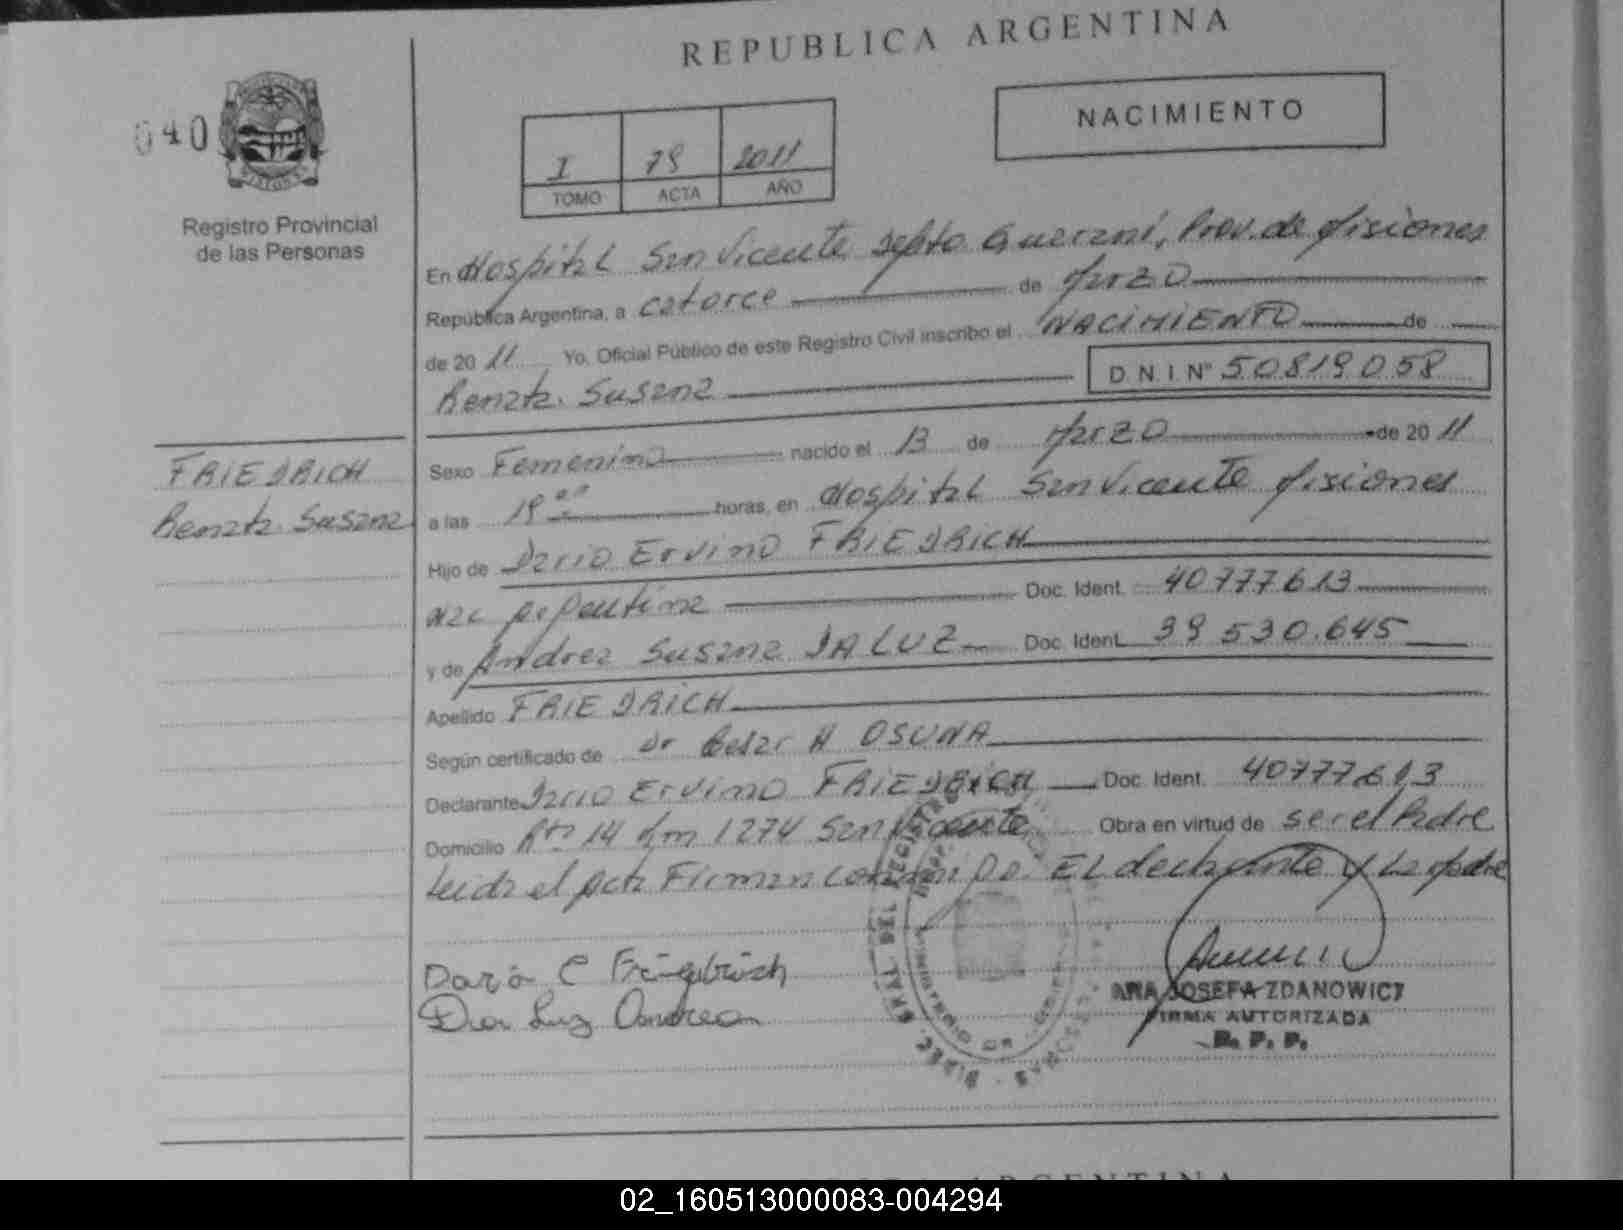 REPUBLICA ARGENTINA
040
NACIMIENTO
I 79 2011
TOMO ACTA AÑO
Registro Provincial
de las Personas
En Hospital San Vicente Depto Guarani, Prov. de Misiones
República Argentina, a catorce de Marzo
de 20 11 Yo, Oficial Público de este Registro Civil inscribo el NACIMIENTO de
Renata Susana D.N.I. Nº 50819058
FRIEDRICH
Renata Susana
Sexo Femenino nacido el 13 de Marzo de 20 11
a las 19 00 horas, en Hospital San Vicente Misiones
Hijo de Dario Ervino FRIEDRICH
Nac Argentina Doc. Ident. 40777613
y de Andrea Susana DA LUZ Doc. Ident. 39 530.645
Apellido FRIEDRICH
Según certificado de Dr Cesar A OSUNA
Declarante Dario Ervino FRIEDRICH Doc. Ident. 40777613
Domicilio Rta 14 Km 1274 San Vicente Obra en virtud de ser el Padre
Leida el Acta Firman conmigo. EL declarante y La Madre
Dario E Friedrich
Da Luz Andrea
ANA JOSEFA ZDANOWICZ
FIRMA AUTORIZADA
R. P. P.
REPUBLICA ARGENTINA
02_160513000083-004294